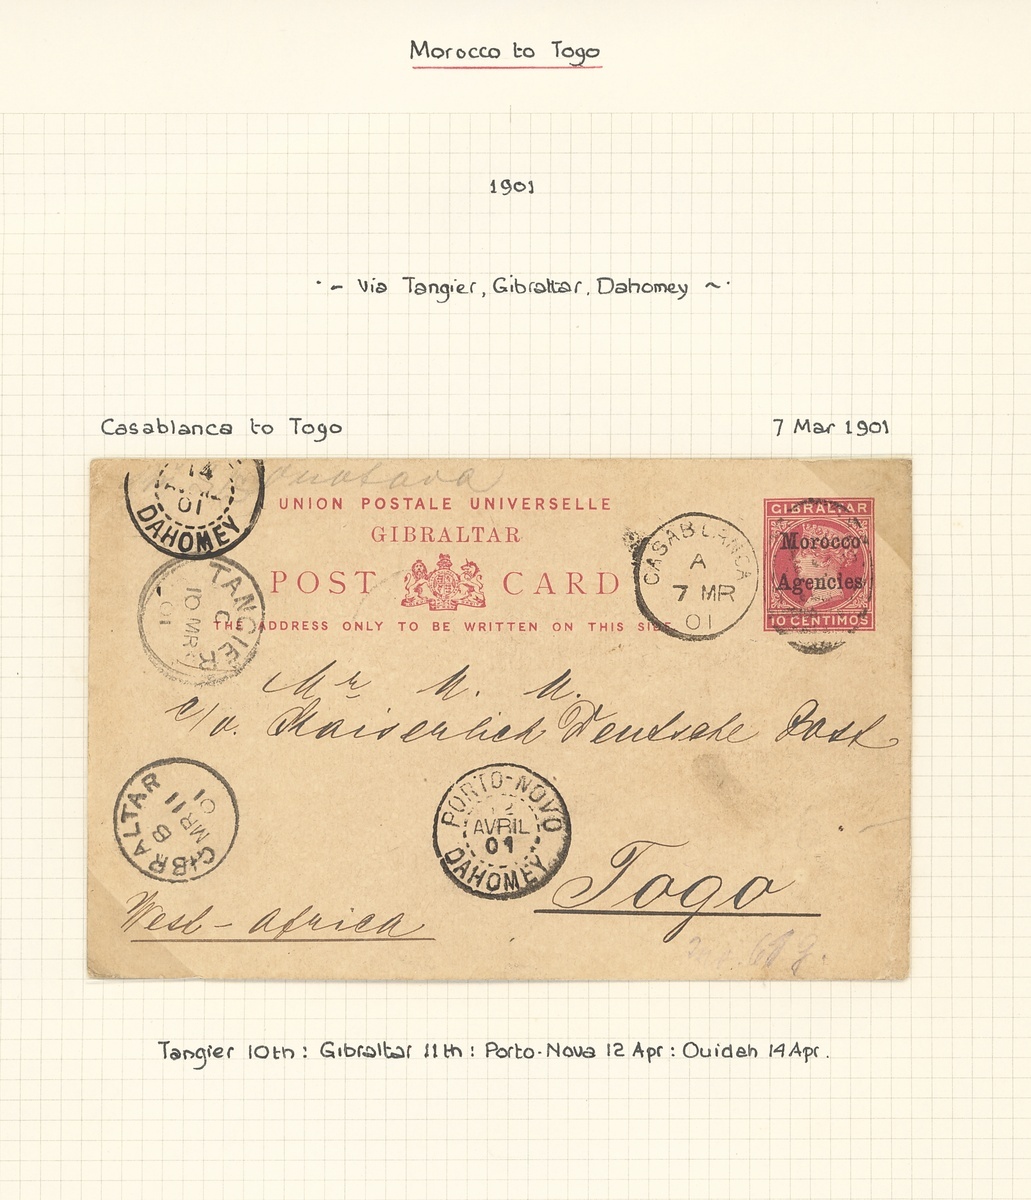 Morocco to Togo
1901
- Via Tangier, Gibraltar, Dahomey ~
Casablanca to Togo
7 Mar 1901
14
01
DAHOMEY
UNION POSTALE UNIVERSELLE
GIBRALTAR
POST CARD
THE ADDRESS ONLY TO BE WRITTEN ON THIS SIDE
CASABLANCA
A
7 MR
01
GIBRALTAR
Morocco
Agencies
10 CENTIMOS
TANGIER
C
10 MR
01
Mr M. M.
c/o. Kaiserlich Deutsche Post
GIBRALTAR
B
MR 11
01
PORTO-NOVO
12
AVRIL
01
DAHOMEY
Togo
West-Africa
Tangier 10th: Gibraltar 11th: Porto-Nova 12 Apr: Ouidah 14 Apr.